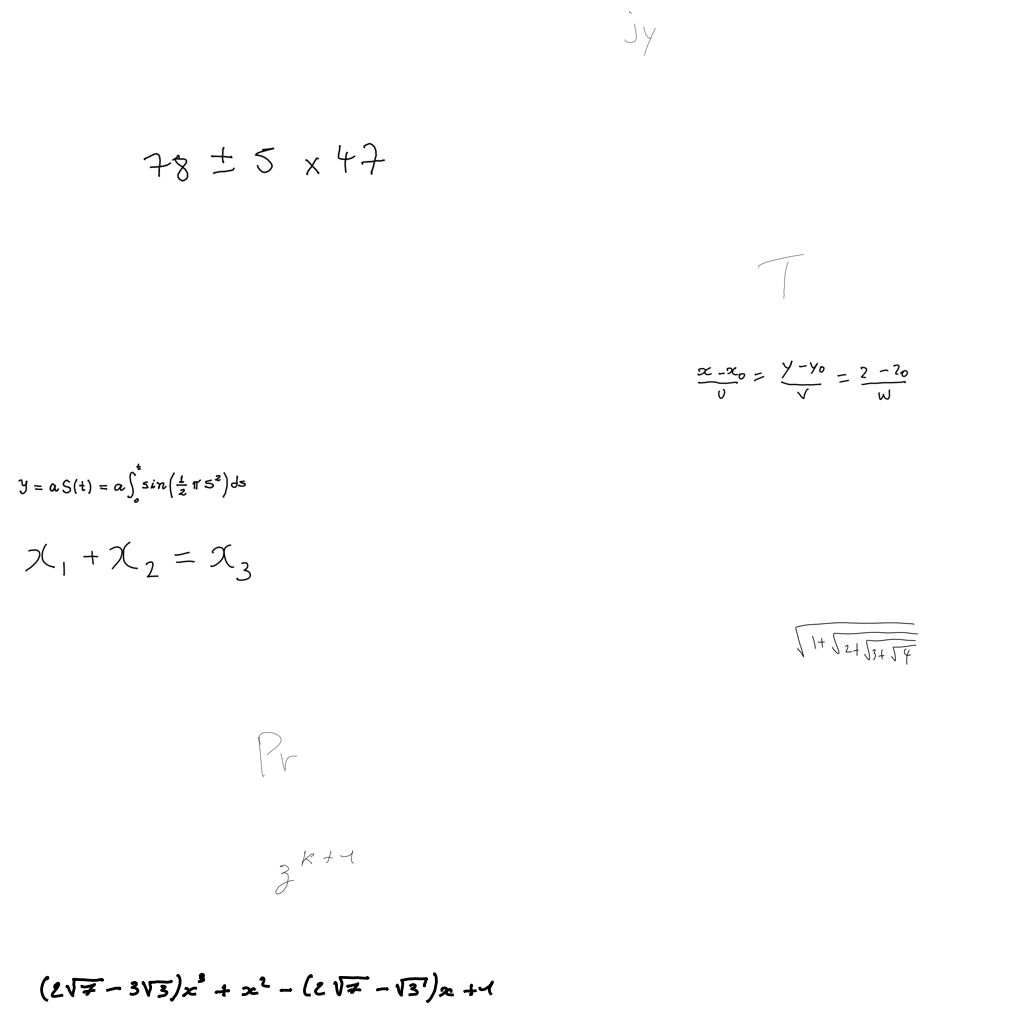 jy
78 ± 5 × 47
T
\frac{x-x_0}{U} = \frac{y-y_0}{V} = \frac{z-z_0}{W}
y = a S(t) = a \int_0^t sin(\frac{1}{2} π s^2) ds
x_1 + x_2 = x_3
\sqrt{1+\sqrt{2+\sqrt{3+\sqrt{4}}}}
Pr
z^{k+1}
(2√7 - 3√3)x^3 + x^2 - (2√7 - √3)x + 1